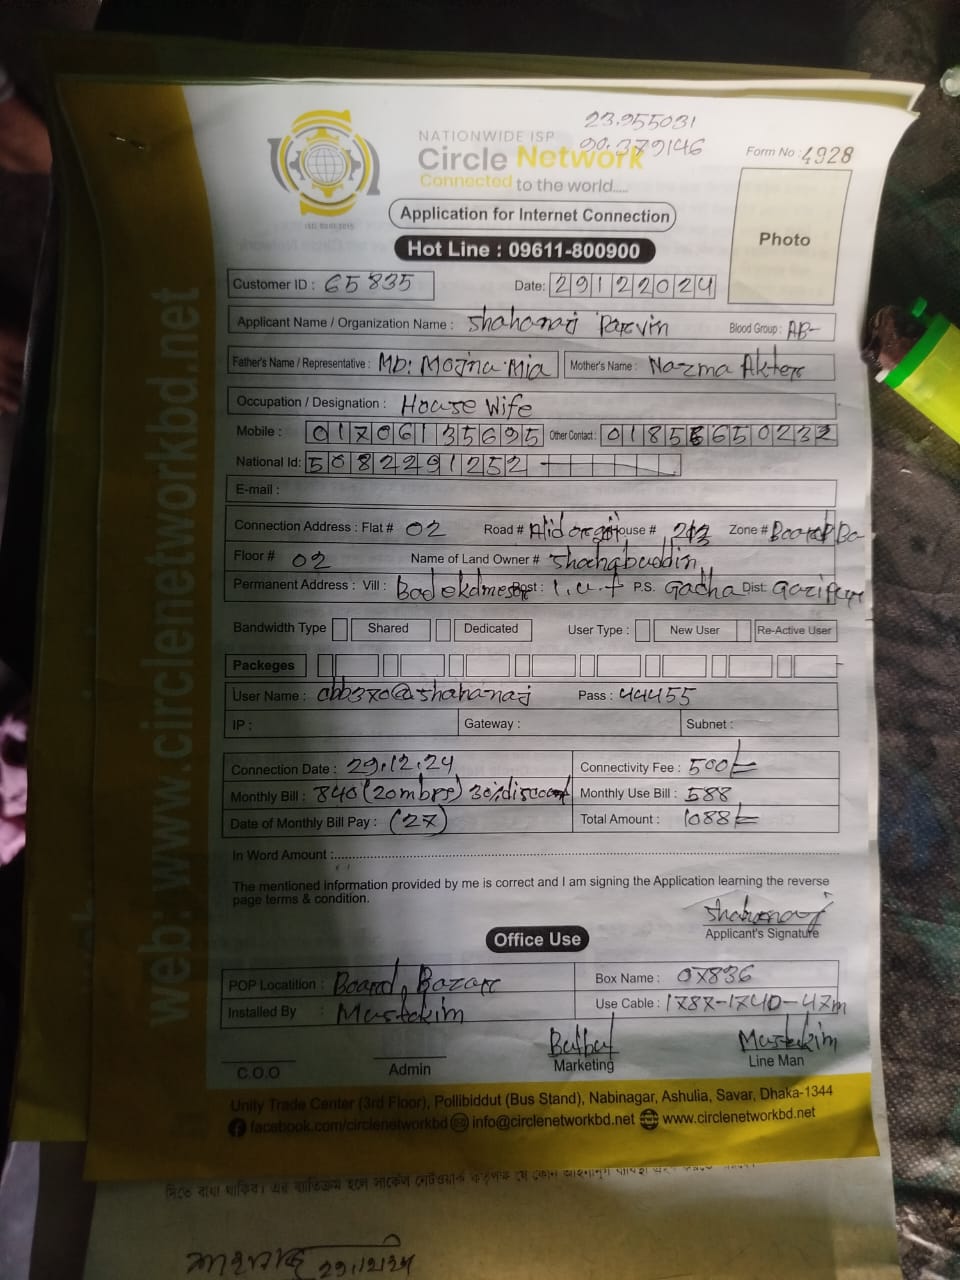 23.955031
90.379146
NATIONWIDE ISP
Circle Network
Connected to the world.....
Form No : 4928
Application for Internet Connection
Photo
Hot Line : 09611-800900
Customer ID : 65835 Date: 29122024
Applicant Name / Organization Name : Shahanaj Parvin Blood Group : AB-
Father's Name / Representative : MD: Moina Mia Mother's Name : Nazma Akter
Occupation / Designation : House Wife
Mobile : 01706135695 Other Contact :
National Id: 5082291252
E-mail :
Connection Address : Flat # 02 Road # House # Zone # Board Ba
Floor # 02 Name of Land Owner # Shahabuddin
Permanent Address : Vill : Post : I.U.T P.S. Gacha Dist: Gazipur
Bandwidth Type Shared Dedicated User Type : New User Re-Active User
Packeges
User Name : cbb370@shahanaj Pass : 44455
IP : Gateway : Subnet :
Connection Date : 29.12.24 Connectivity Fee : 500/=
Monthly Bill : 840 (20mbps) 30% discount Monthly Use Bill : 588
Date of Monthly Bill Pay : (27) Total Amount : 1088/=
In Word Amount :
The mentioned information provided by me is correct and I am signing the Application learning the reverse
page terms & condition.
Shahanaj
Applicant's Signature
Office Use
POP Locatition : Board Bazar Box Name : 07836
Installed By : Mustakim Use Cable : 1787-1740-47m
Mustakim
C.O.O Admin Marketing Line Man
Unity Trade Center (3rd Floor), Pollibiddut (Bus Stand), Nabinagar, Ashulia, Savar, Dhaka-1344
facebook.com/circlenetworkbd info@circlenetworkbd.net www.circlenetworkbd.net
web: www.circlenetworkbd.net